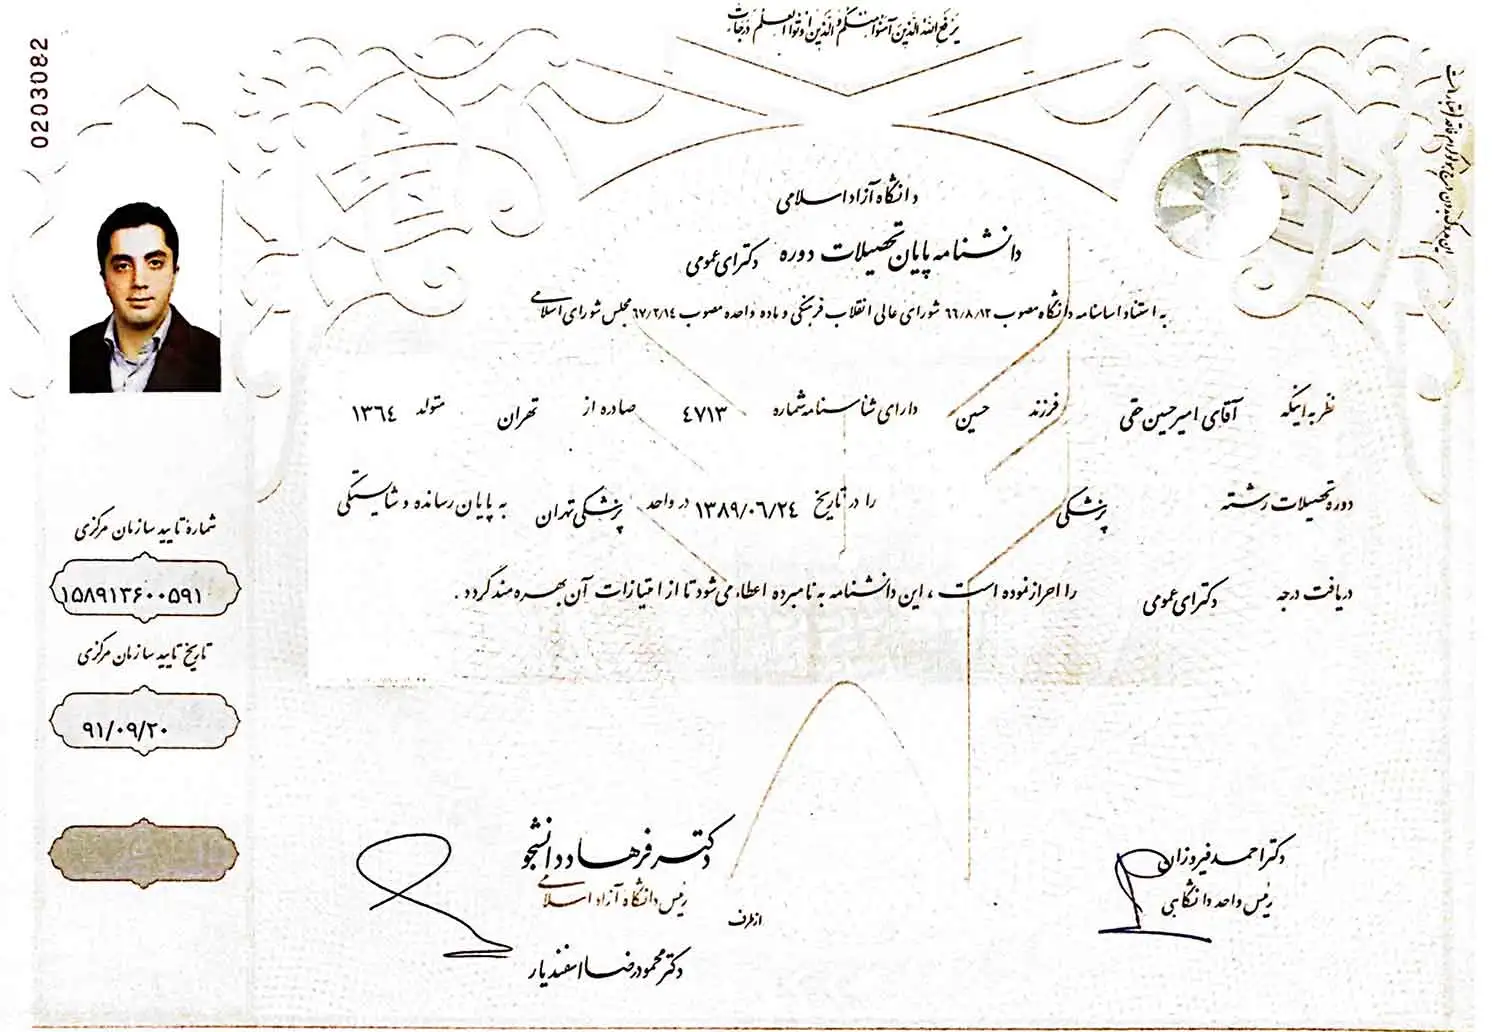 یرفع الله الذین آمنوا منکم و الذین اوتوا العلم درجات
0203082
این مدرک بدون درج هولوگرام فاقد اعتبار است
دانشگاه آزاد اسلامی
دانشنامه پایان تحصیلات دوره دکترای عمومی
به استناد اساسنامه دانشگاه مصوب ۶۶/۸/۱۲ شورای عالی انقلاب فرهنگی و ماده واحده مصوب ۶۷/۲/۱۴ مجلس شورای اسلامی
نظر به اینکه آقای امیرحسین حقی فرزند حسین دارای شناسنامه شماره ٤٧١٣ صادره از تهران متولد ١٣٦٤
دوره تحصیلات رشته پزشکی را در تاریخ ١٣٨٩/٠٦/٢٤ در واحد پزشکی تهران به پایان رسانده و شایستگی
دریافت درجه دکترای عمومی را احراز نموده است ، این دانشنامه به نامبرده اعطاء می‌شود تا از امتیازات آن بهره‌مند گردد .
شماره تایید سازمان مرکزی
۱۵۸۹۱۳۶۰۰۵۹۱
تاریخ تایید سازمان مرکزی
۹۱/۰۹/۲۰
دکتر احمد فیروزان
رئیس واحد دانشگاهی
دکتر فرهاد دانشجو
رئیس دانشگاه آزاد اسلامی
از طرف
دکتر محمودرضا اسفندیار